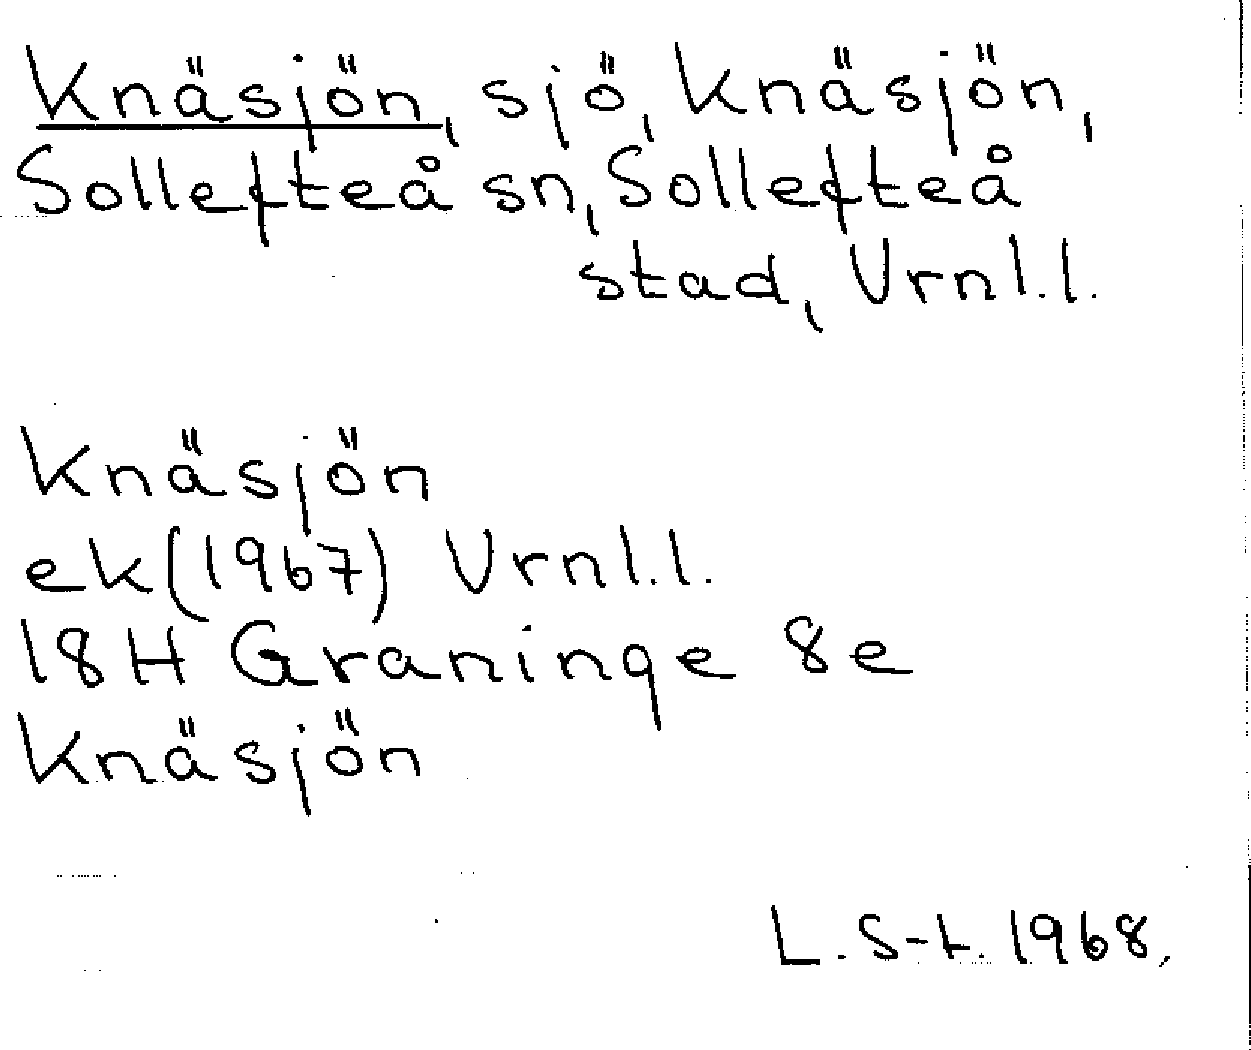 Knäsjön, sjö, Knäsjön,
Sollefteå sn, Sollefteå
stad, Vrnl.l.
Knäsjön
ek (1967) Vrnl.l.
18H Graninge 8e
Knäsjön
L. S-t. 1968.